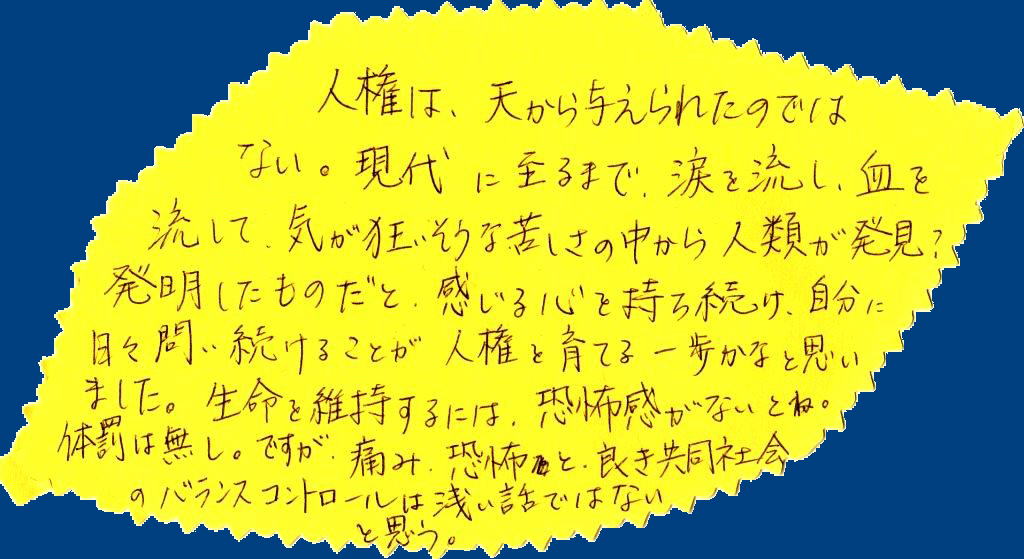 人権は、天から与えられたのでは
ない。現代に至るまで、涙を流し、血を
流して、気が狂いそうな苦しさの中から人類が発見?
発明したものだと、感じる心を持ち続け、自分に
日々問い続けることが人権を育てる一歩かなと思い
ました。生命を維持するには、恐怖感がないとね。
体罰は無し。ですが、痛み、恐怖と、良き共同社会
のバランスコントロールは浅い話ではない
と思う。